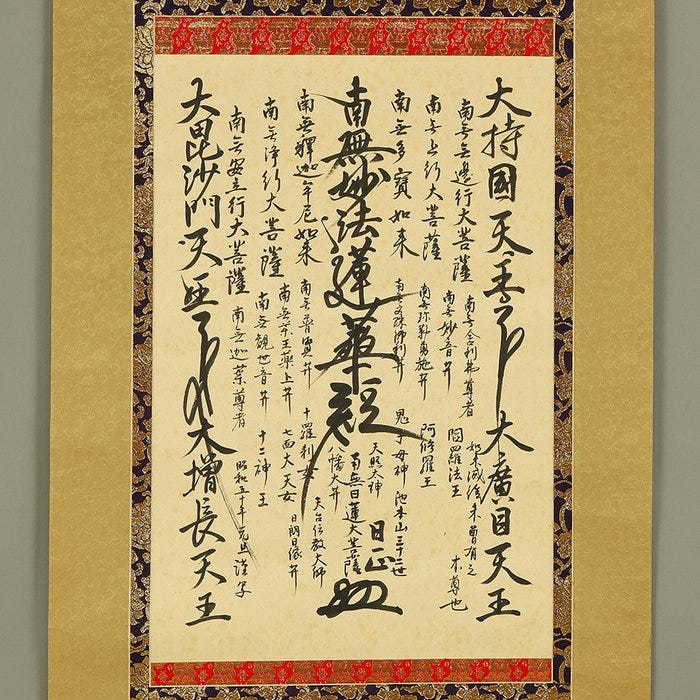 大持國天王
大廣目天王
南無無邊行大菩薩
南無舎利弗尊者
如来滅後未曽有之
大本尊也
南無上行大菩薩
南無妙音井
閻羅法王
南無多寳如来
南無弥勒勇施井
阿修羅王
南無文殊師利井
鬼子母神
池本山三十二世
日正
天照大神
南無妙法蓮華経
南無日蓮大菩薩
八幡大井
南無釋迦牟尼如来
南無普賢井
十羅刹女
天台伝教大師
南無浄行大菩薩
南無薬王薬上井
七面大天女
日朗日像井
南無安立行大菩薩
南無観世音井
十二神王
南無迦葉尊者
昭和五十年元旦謹写
大毘沙門天王
大増長天王